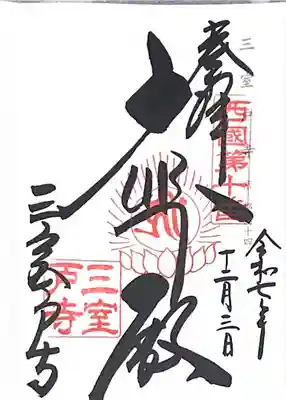 奉拝
西國第十番
大悲殿
令和七年
十二月三日
三室戸寺
三室
戸寺